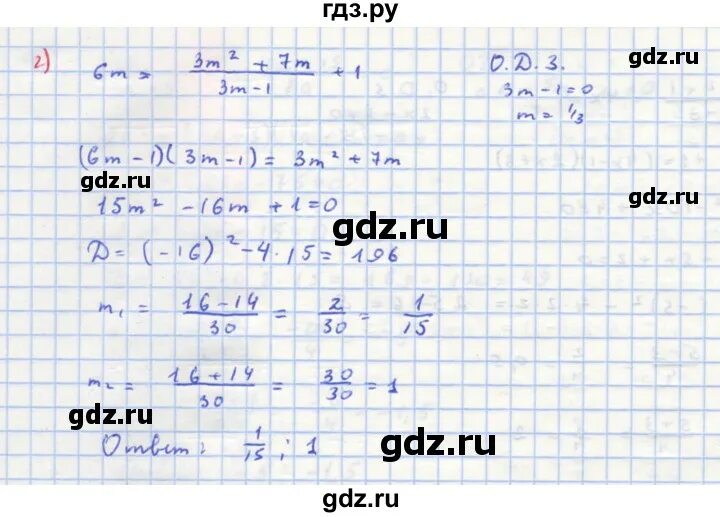 гдз.ру
г) 6m = (3m² + 7m)/(3m-1) + 1 О.Д.З.
3m-1=0
m = 1/3
gdz.ru
(6m-1)(3m-1) = 3m²+7m
gdz.ru
gdz.ru
15m² -16m +1=0
gdz.ru
Д = (-16)² -4·15= 196
m₁ = (16-14)/30 = 2/30 = 1/15
m₂ = (16+14)/30 = 30/30 = 1
gdz.ru
gdz.ru
Ответ: 1/15 ; 1
gdz.ru
gdz.ru